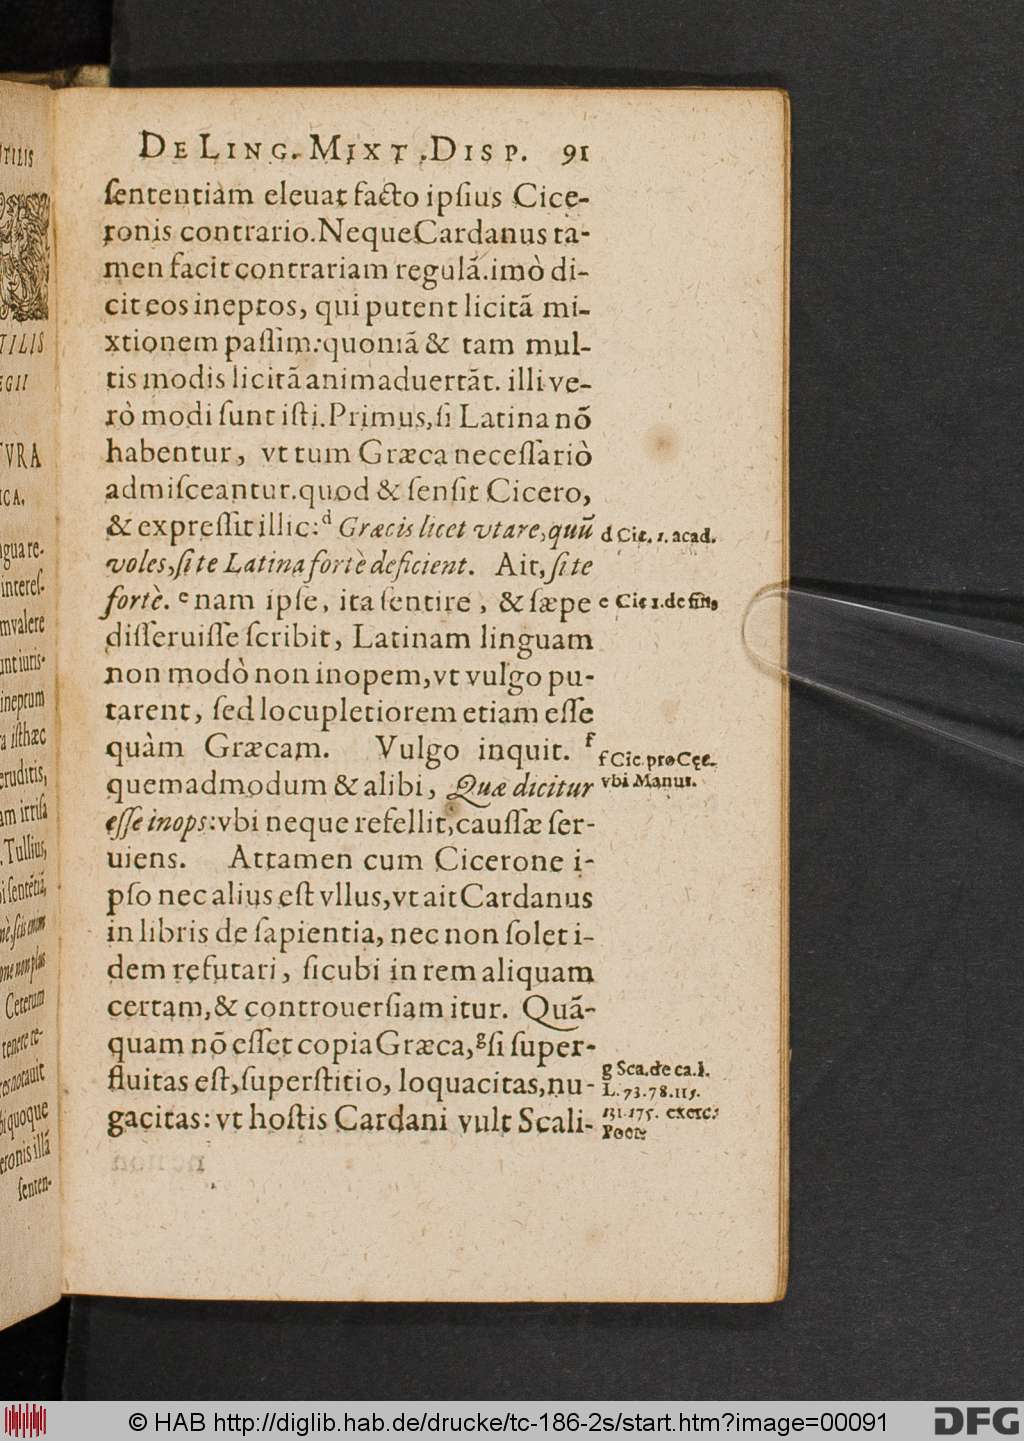 DE LING. MIXT. DISP. 91
ſententiam eleuat facto ipſius Cice-
ronis contrario. Neque Cardanus ta-
men facit contrariam regulã. imò di-
cit eos ineptos, qui putent licitã mi-
xtionem paſſim: quoniã & tam mul-
tis modis licitã animaduertãt. illi ve-
rò modi ſunt iſti. Primus, ſi Latina nõ
habentur, vt tum Græca neceſſariò
admiſceantur. quod & ſenſit Cicero,
& expreſſit illic: d Græcis licet vtare, quũ
voles, ſi te Latina fortè deficient. Ait, ſi te
fortè. e nam ipſe, ita ſentire, & ſæpe
diſſeruiſſe ſcribit, Latinam linguam
non modò non inopem, vt vulgo pu-
tarent, ſed locupletiorem etiam eſſe
quàm Græcam. Vulgo inquit. f
quemadmodum & alibi, Quæ dicitur
eſſe inops: vbi neque refellit, cauſſæ ſer-
uiens. Attamen cum Cicerone i-
pſo nec alius eſt vllus, vt ait Cardanus
in libris de ſapientia, nec non ſolet i-
dem refutari, ſicubi in rem aliquam
certam, & controuerſiam itur. Quã-
quam nõ eſſet copia Græca, g ſi ſuper-
fluitas eſt, ſuperſtitio, loquacitas, nu-
gacitas: vt hoſtis Cardani vult Scali-
d Cic. 1. acad.
e Cic 1. de fin,
f Cic. pro Cęc.
vbi Manut.
g Sca. de ca. l.
L. 73. 78. 115.
131. 175. exerc:
Poet:
TILIS
TILIS
EGII
TVRA
ICA.
gua re-
intereſ-
mvalere
unt iuris-
ineptum
a iſthæc
eruditis,
am irriſa
. Tullius,
i ſentẽtiã,
nè, ſcis enim
one non plus
Ceterum
tenere re-
res notauit
quoque
eronis illã
ſenten-
© HAB http://diglib.hab.de/drucke/tc-186-2s/start.htm?image=00091
DFG